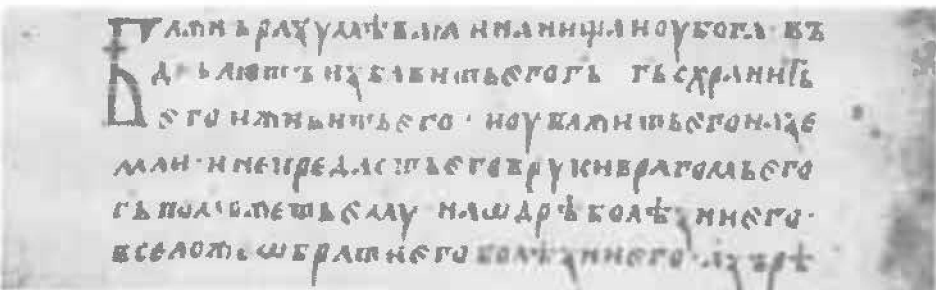 Блжнъ разумѣваꙗ инанищаноубога въ
днь лютъ избавитьегогь гьсхранить
его ижнвитьего · иоублжитьегоназе
мли · инепредастьеговрукиврагомьего
гьпоможетьему наѡдрѣболѣзниего ·
вселожеѡбратиего болѣзниего · азърѣ